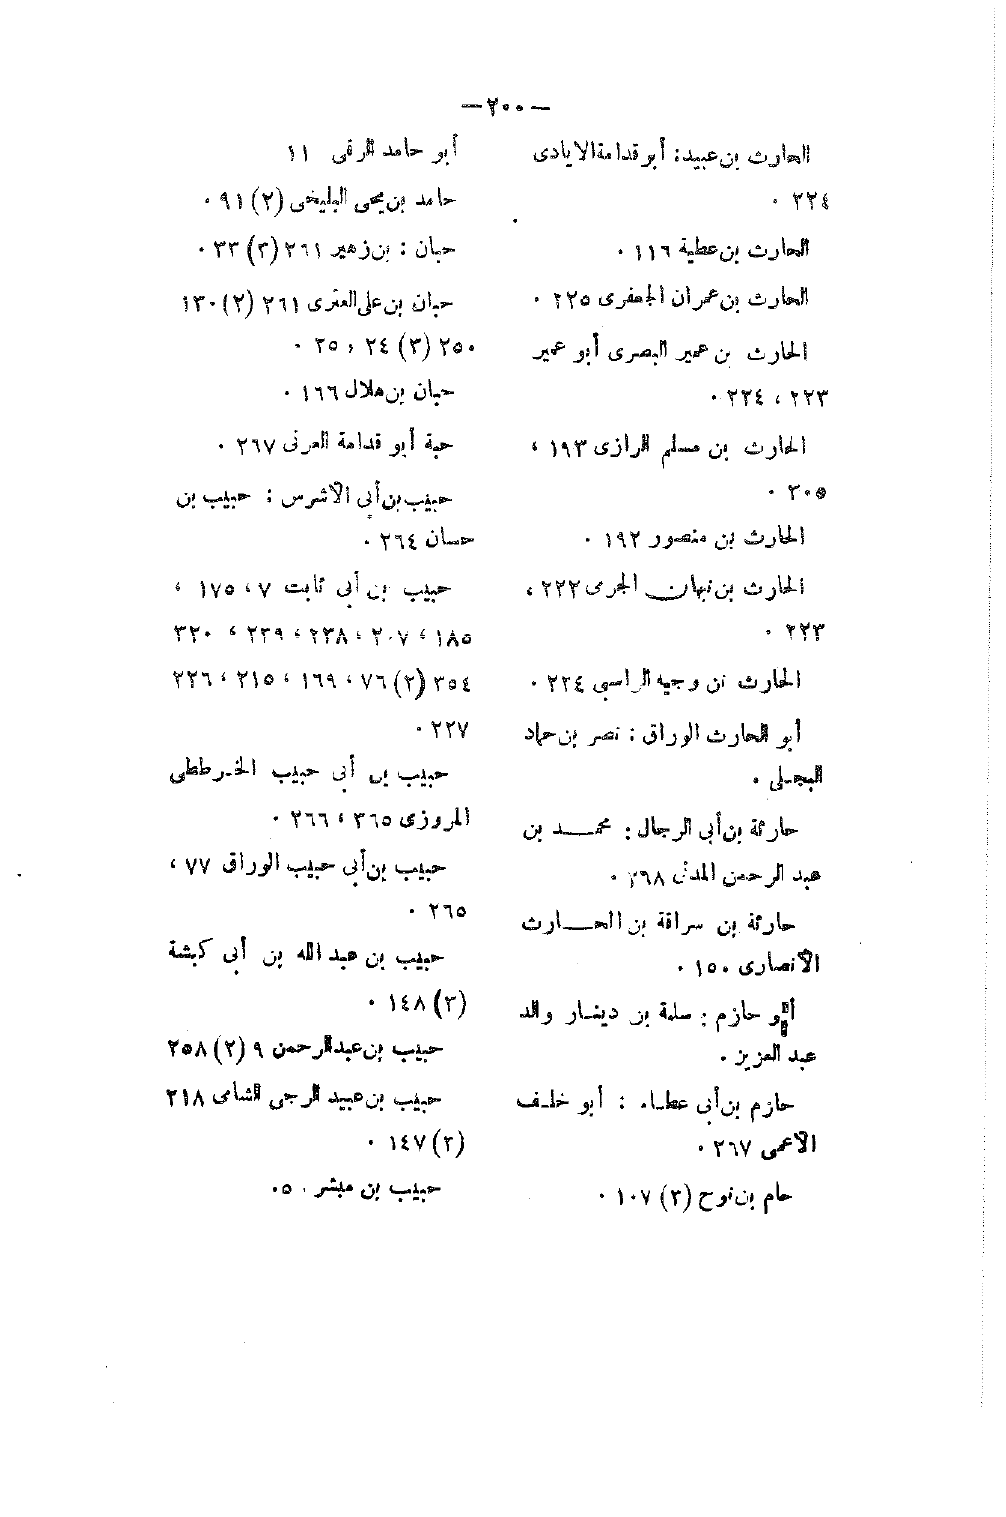 —٢٠٠—
الحارث بن عبيد: أبو قدامة الايادى
٢٢٤ .
الحارث بن عطية ١١٦ .
الحارث بن عمران الجعفرى ٢٢٥ .
الحارث بن عمير البصرى أبو عمير
٢٢٣ ، ٢٢٤ .
الحارث بن مسلم الرازى ١٩٣ ،
٣٠٥ .
الحارث بن منصور ١٩٢ .
الحارث بن نبهان الجرمى ٢٢٢ ،
٢٢٣ .
الحارث بن وجيه الراسبى ٢٢٤ .
أبو الحارث الوراق : نصر بن حماد
البجلى .
حارثة بن أبى الرجال : محمد بن
عبد الرحمن المدنى ٢٦٨ .
حارثة بن سراقة بن الحارث
الأنصارى ١٥٠ .
أبو حازم : سلمة بن دينار والد
عبد العزيز .
حازم بن أبى عطاء : أبو خلف
الاعمى ٢٦٧ .
حام بن نوح (٢) ١٠٧ .
أبو حامد الرقى ١١
حامد بن يحيى البليخى (٢) ٩١ .
حبان : بن زهير ٢٦١ (٣) ٣٣ .
حبان بن على العنزى ٢٦١ (٢) ١٣٠
٢٥٠ (٣) ٢٤ ، ٢٥ .
حبان بن هلال ١٦٦ .
حبة أبو قدامة العرنى ٢٦٧ .
حبيب بن أبى الاشرس : حبيب بن
حسان ٢٦٤ .
حبيب بن أبى ثابت ٧ ، ١٧٥ ،
١٨٥ ، ٢٠٧ ، ٢٣٨ ، ٢٣٩ ، ٣٢٠
٣٥٤ (٢) ٧٦ ، ١٦٩ ، ٢١٥ ، ٢٢٦
٢٢٧ .
حبيب بن أبى حبيب الخرططى
المروزى ٢٦٥ ، ٢٦٦ .
حبيب بن أبى حبيب الوراق ٧٧ ،
٢٦٥ .
حبيب بن عبد الله بن أبى كبشة
(٣) ١٤٨ .
حبيب بن عبد الرحمن ٩ (٢) ٢٥٨
حبيب بن عبيد الرحبى الشامى ٢١٨
(٢) ١٤٧ .
حبيب بن مبشر ٥٠ .